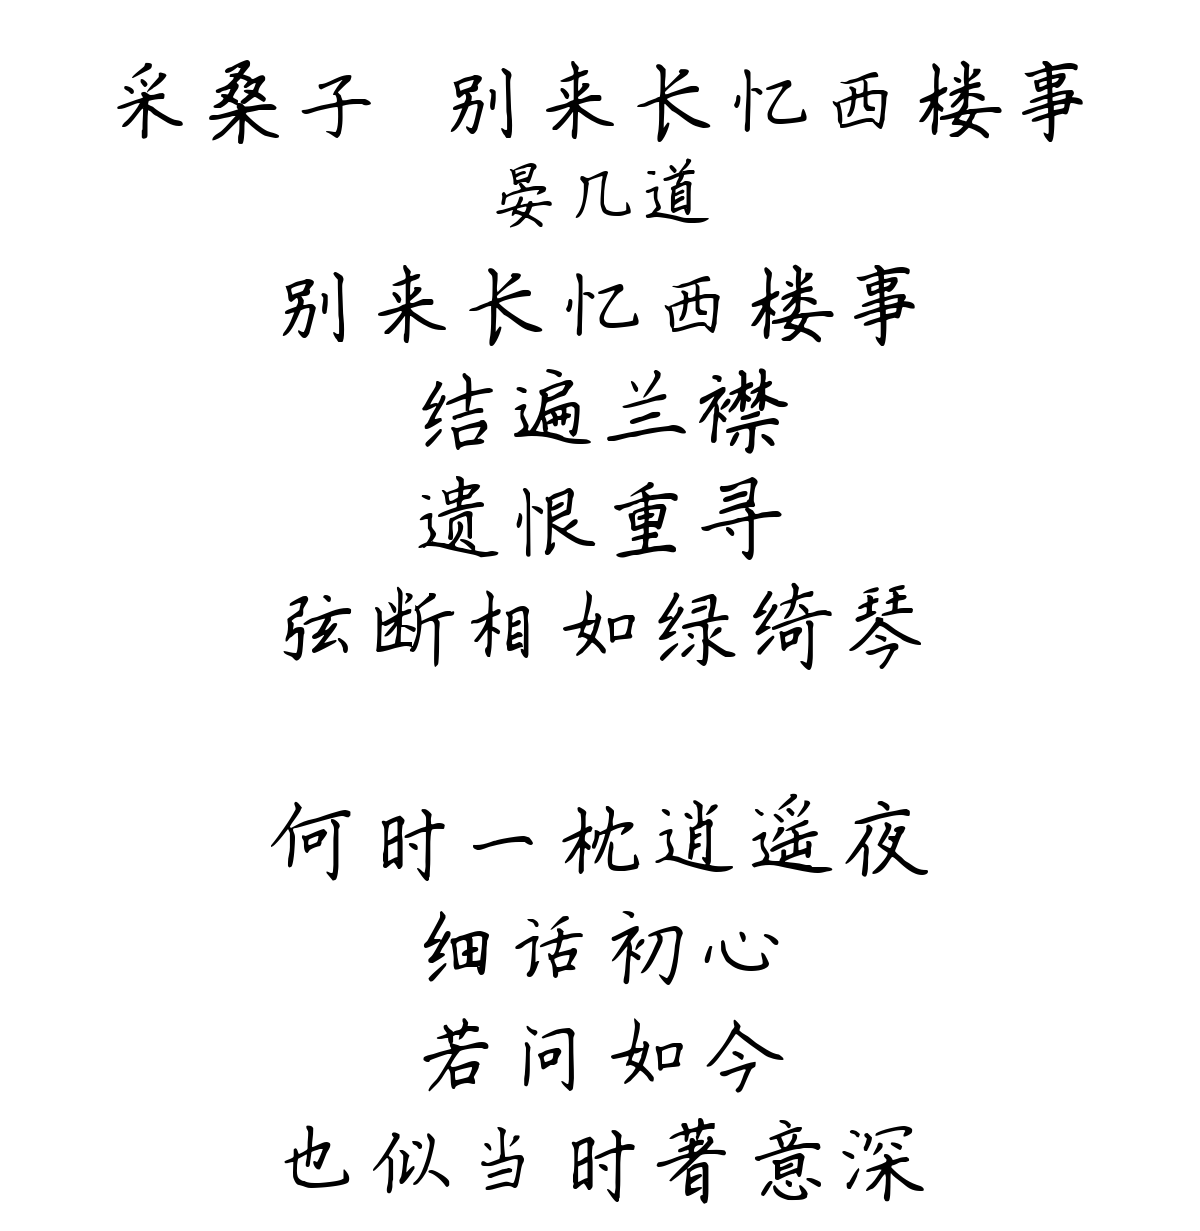 采桑子 别来长忆西楼事
晏几道
别来长忆西楼事
结遍兰襟
遗恨重寻
弦断相如绿绮琴
何时一枕逍遥夜
细话初心
若问如今
也似当时著意深